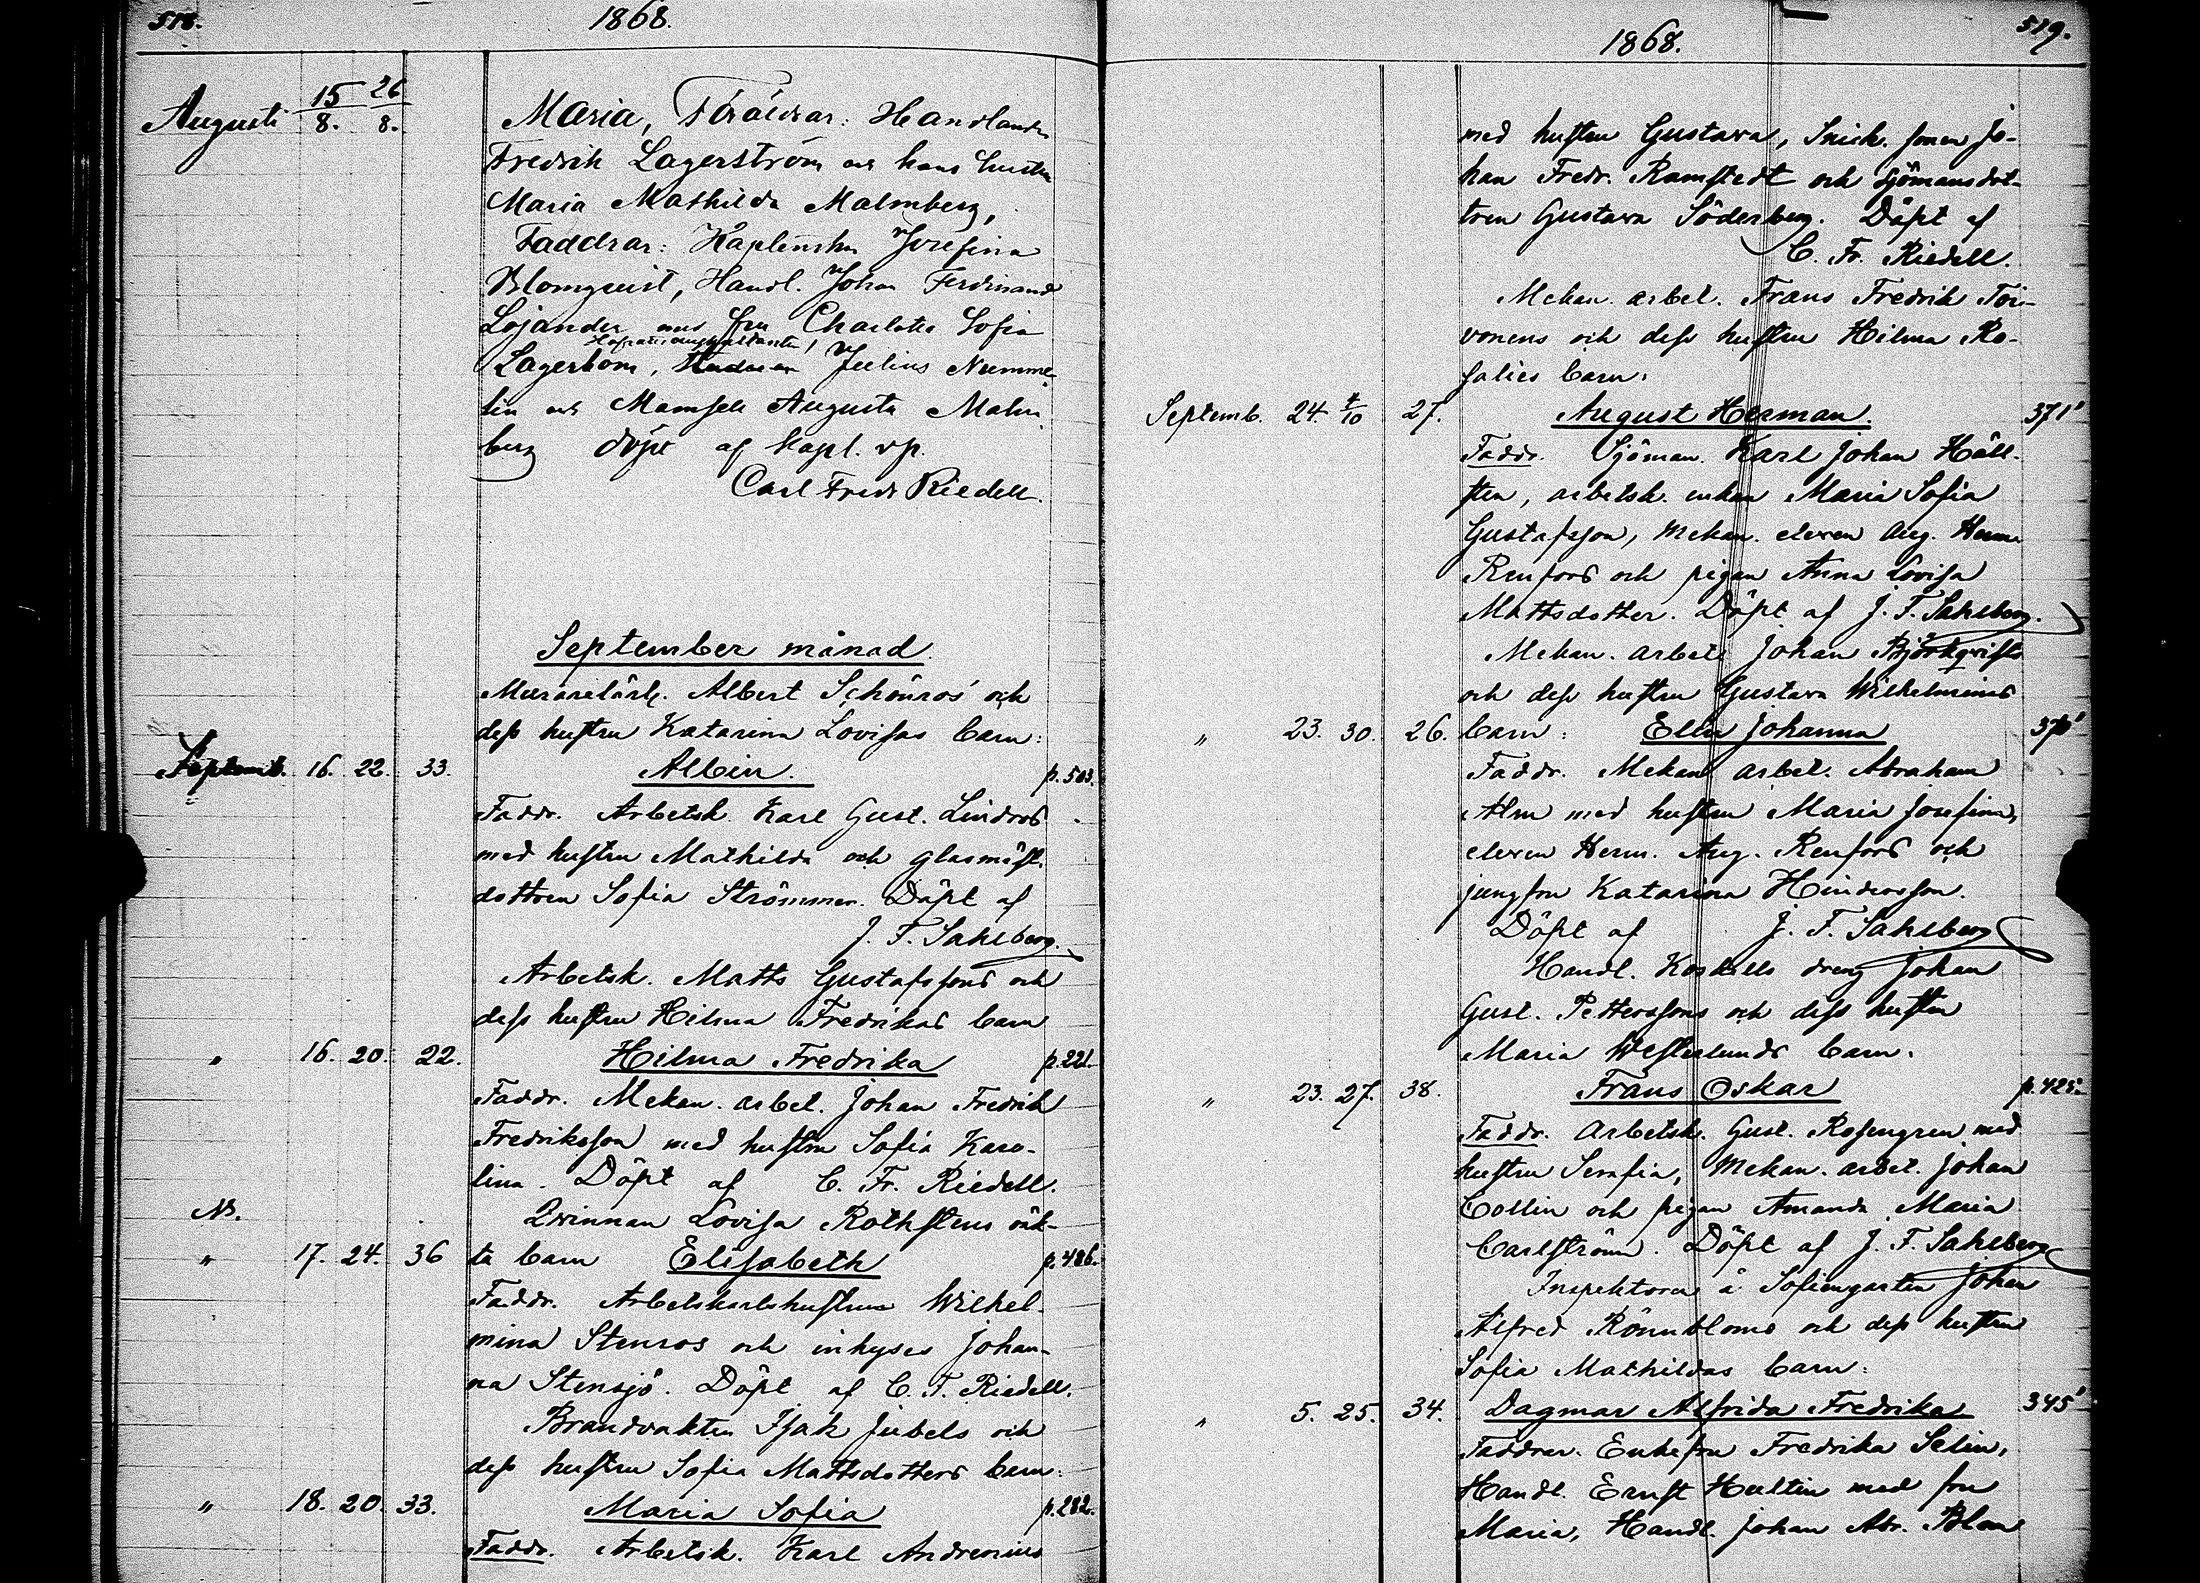 518.
1868.
Augusti 15/8. 26/8. Maria, Föräldrar: Handlanden
Fredrik Lagerström och hans hustru
Maria Mathilda Malmberg,
Faddrar: Kaplenskan Josefina
Blomquist, Handl. Johan Ferdinand
Lojander och fru Charlotta Sofia
Lagerbom, Julius Numme-
lin och Mamsell Augusta Malm-
berg döpt af kapl. vp.
Carl Fredr Riedell.
September månad
Murarelärl. Albert Schönros' och
dess hustru Katarina Lovisas barn:
Septemb. 16. 22. 33. Albin. p. 503.
Faddr. Arbetsk. Karl Gust. Lindros
med hustru Mathilda och glasmäst.
dottren Sofia Strömmer. Döpt af
J. F. Sahlberg.
Arbetsk. Matts Gustafssons och
dess hustru Hilma Fredrikas barn
" 16. 20. 22. Hilma Fredrika p. 221.
Faddr. Mekan. arbet. Johan Fredrik
Fredriksson med hustru Sofia Karo-
lina. Döpt af C. Fr. Riedell.
Nb. Qvinnan Lovisa Rothstens oäk-
" 17. 24. 36 ta barn Elisabeth p. 486.
Faddr. Arbetskarlshustrun Wilhel-
mina Stenros och inhyses Johan-
na Stensjö. Döpt af C. F. Riedell.
Brandvakten Isak Jubels och
dess hustru Sofia Mattsdotters barn:
" 18. 20. 33. Maria Sofia p. 282.
Faddr. Arbetsk. Karl Andrenius
519.
1868.
med hustru Gustava, Snick. sonen Jo-
han Fredr. Ramstedt och sjömansdot-
tren Gustava Söderberg. Döpt af
C. Fr. Riedell.
Mekan. arbet. Frans Fredrik Toi-
vonens och dess hustru Hilma Ro-
salies barn:
Septemb. 24. 4/10 27. August Herman. 371'
Faddr. Sjöman. Karl Johan Häll-
sten, arbetsk. enkan Maria Sofia
Gustafsson, Mekan. eleven Aug. Herm.
Renfors och pigan Anna Lovisa
Mattsdotter. Döpt af J. F. Sahlberg.
Mekan. arbet. Johan Björkqvists
och dess hustru Gustava Wilhelminas
" 23. 30. 26. barn: Ellin Johanna 370'
Faddr. Mekan. arbet. Abraham
Alm med hustru Maria Josefina,
eleven Herm. Aug. Renfors och
jungfru Katarina Hindersson.
Döpt af J. F. Sahlberg
Handl. Koskells dreng Johan
Gust. Petterssons och dess hustru
Maria Westerlunds barn.
" 23. 27. 38. Frans Oskar p. 425.
Faddr. Arbetsk. Gust. Rosengren med
hustru Serafia, Mekan. arbet. Johan
Collin och pigan Amanda Maria
Carlström. Döpt af J. F. Sahlberg
Inspektoren å Sofiengarten Johan
Alfred Rönnbloms och dess hustru
Sofia Mathildas barn:
" 5. 25. 34. Dagmar Alfrida Fredrika 345'
Faddrar. Enkefru Fredrika Selin,
Handl. Ernst Hultin med fru
Maria, Handl. Johan Abr. Blom